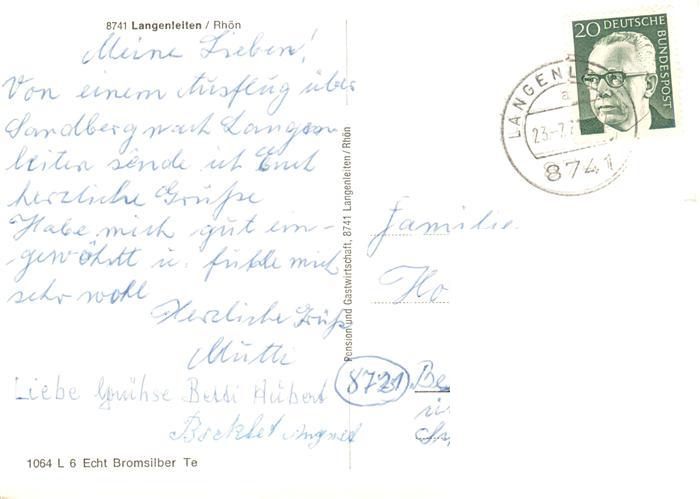 8741 Langenleiten / Rhön
Meine Lieben!
Von einem Ausflug über
Sandberg nach Langen-
leiten sende ich Euch
herzliche Grüße
Habe mich gut ein-
gewöhnt u. fühle mich
sehr wohl
Herzliche Grüße
Mutti
Liebe Grühse Betti Hubert
Bocklet
1064 L 6 Echt Bromsilber Te
Pension und Gastwirtschaft, 8741 Langenleiten / Rhön
20 DEUTSCHE BUNDESPOST
LANGENL
a
23.-7.7
8741
Familie
Ho
8721 Be